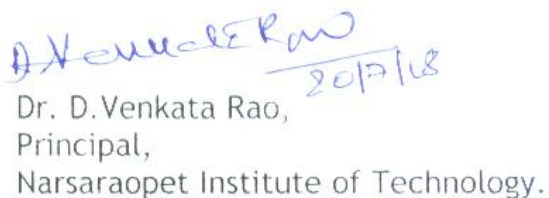 D. Venkata Rao
20/7/18
Dr. D.Venkata Rao,
Principal,
Narsaraopet Institute of Technology.